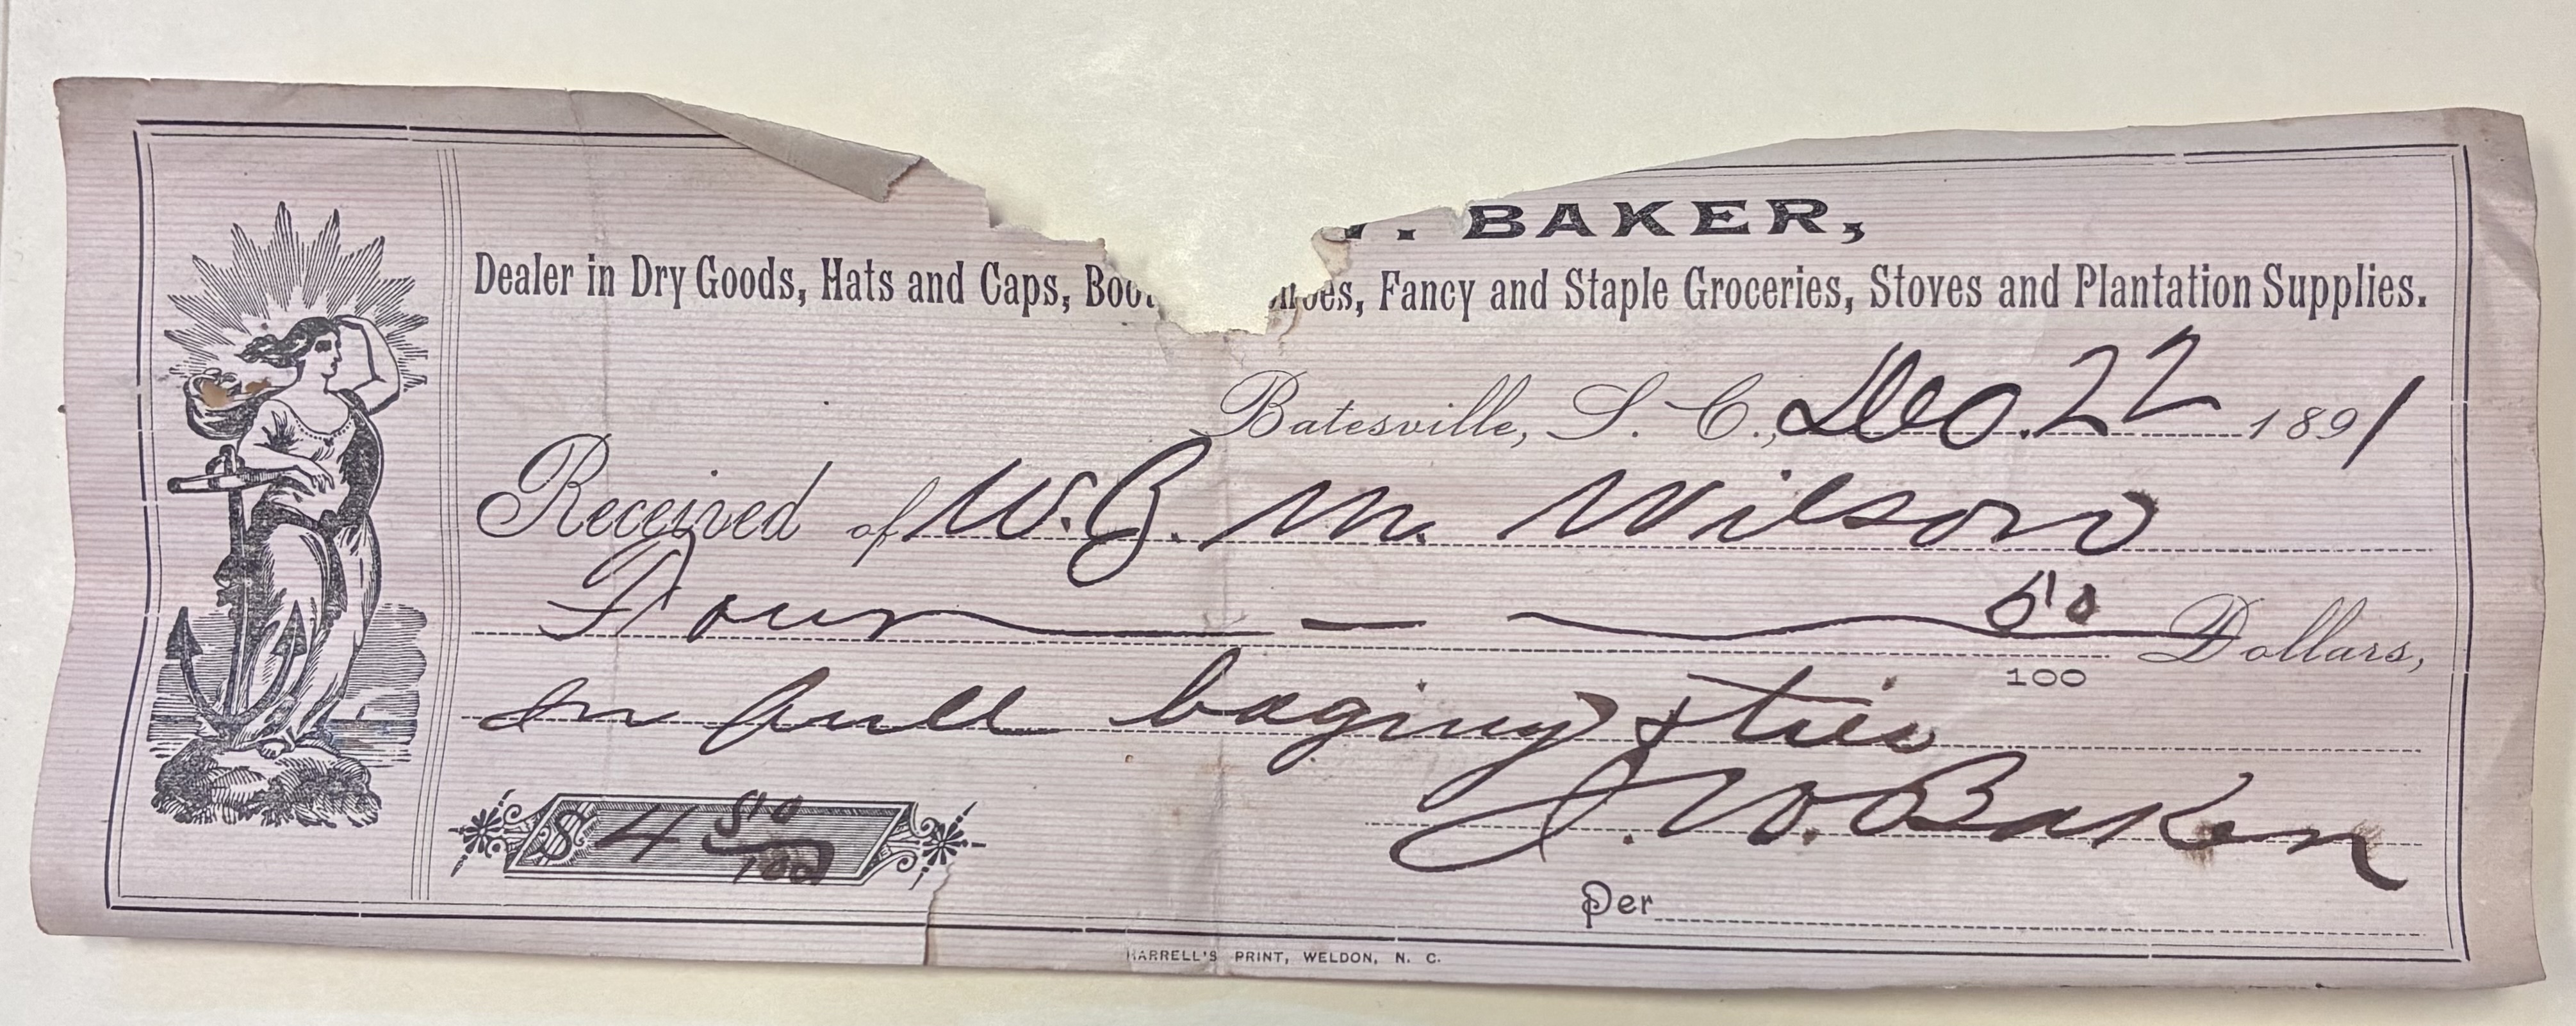 BAKER,
Dealer in Dry Goods, Hats and Caps, Fancy and Staple Groceries, Stoves and Plantation Supplies.
Batesville, S. C., Dec. 22 1891
Received of W. J. M. Wilson
Four 50
100 Dollars,
In full baging & ties
$ 4 50/100
J. W. Baker
Per
HARRELL'S PRINT, WELDON, N. C.